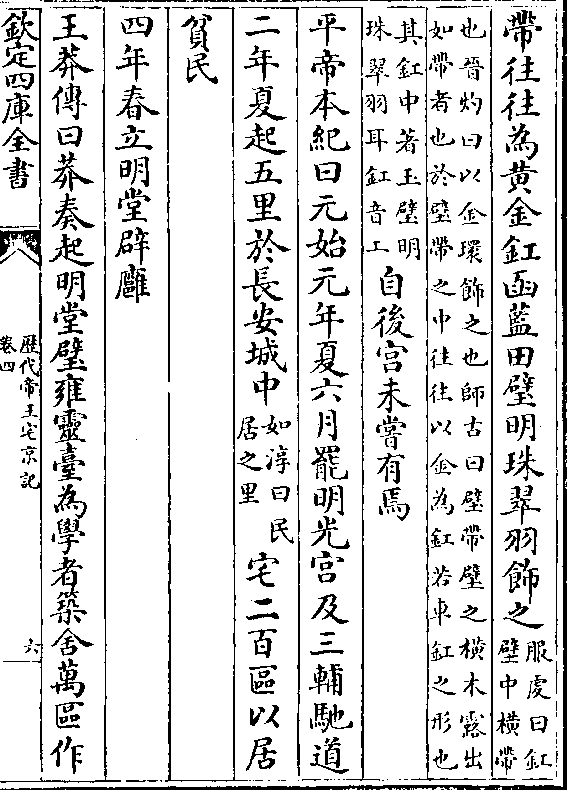 帶往往為黄金釭函藍田璧明珠翠羽飾之服䖍曰釭壁中横帶
也晉灼曰以金環飾之也師古曰壁帶壁之横木露出
如帶者也於壁帶之中往往以金為釭若車釭之形也
其釭中著玉璧明珠翠羽耳釭音工自後宫未嘗有焉
平帝本紀曰元始元年夏六月罷明光宫及三輔馳道
二年夏起五里於長安城中如淳曰民居之里宅二百區以居
貧民
四年春立明堂辟廱
王莽傳曰莽奏起明堂璧雍靈臺為學者築舍萬區作
欽定四庫全書
歷代帝王宅京記
卷四
六